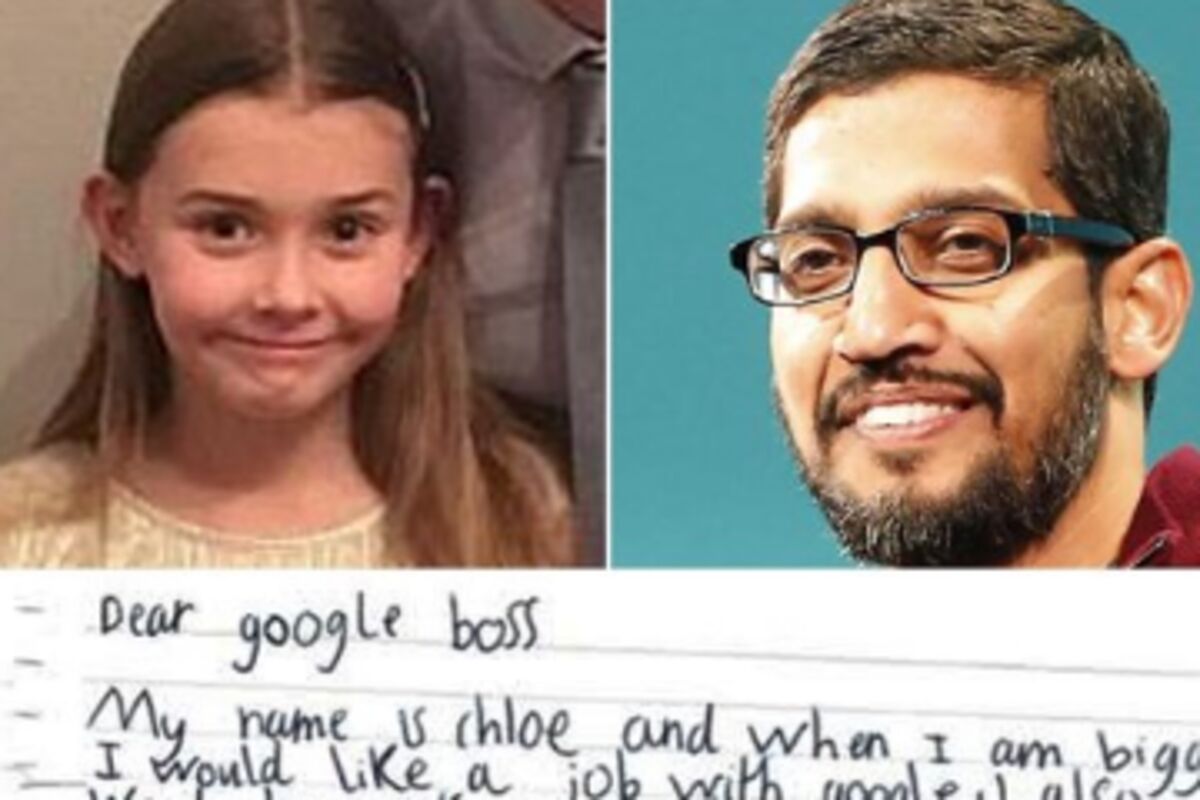 Dear google boss
My name is chloe and when I am bigg
I would like a job with google. I also